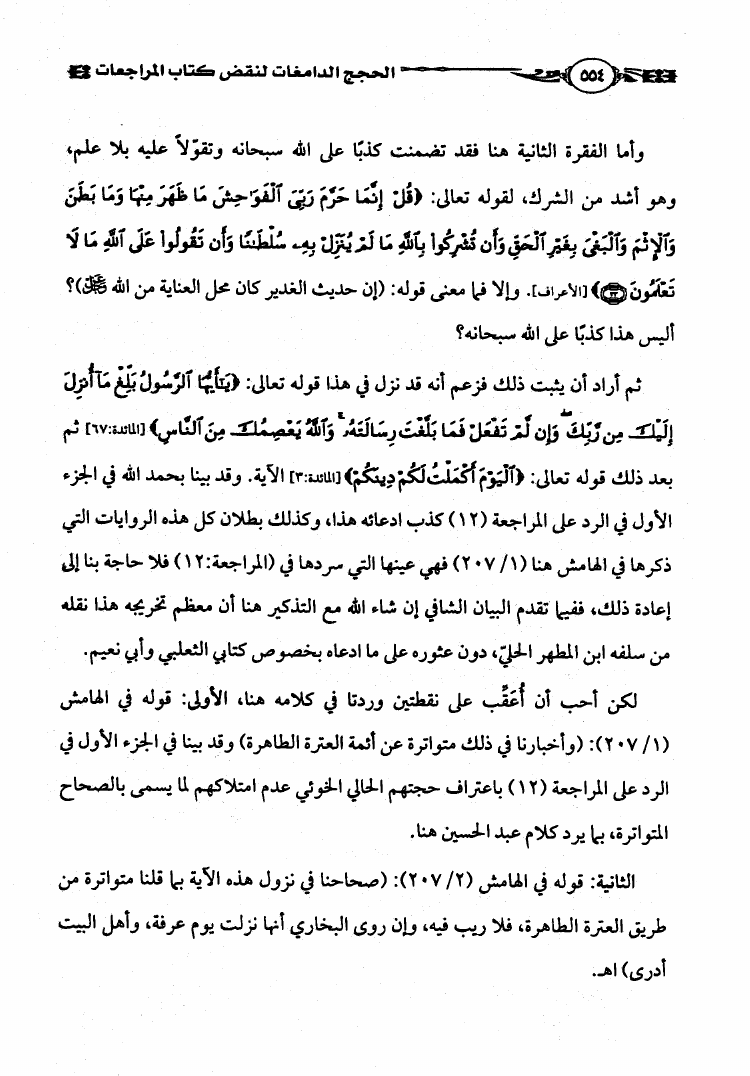 ٥٥٤ الحجج الدامغات لنقض كتاب المراجعات
وأما الفقرة الثانية هنا فقد تضمنت كذبًا على الله سبحانه وتقوّلاً عليه بلا علم،
وهو أشد من الشرك، لقوله تعالى: ﴿قُلْ إِنَّمَا حَرَّمَ رَبِّيَ ٱلْفَوَٰحِشَ مَا ظَهَرَ مِنْهَا وَمَا بَطَنَ
وَٱلْإِثْمَ وَٱلْبَغْىَ بِغَيْرِ ٱلْحَقِّ وَأَن تُشْرِكُوا۟ بِٱللَّهِ مَا لَمْ يُنَزِّلْ بِهِۦ سُلْطَٰنًا وَأَن تَقُولُوا۟ عَلَى ٱللَّهِ مَا لَا
تَعْلَمُونَ ٣٣﴾ [الأعراف]. وإلا فما معنى قوله: (إن حديث الغدير كان محل العناية من الله ﷻ)؟
أليس هذا كذبًا على الله سبحانه؟
ثم أراد أن يثبت ذلك فزعم أنه قد نزل في هذا قوله تعالى: ﴿يَٰٓأَيُّهَا ٱلرَّسُولُ بَلِّغْ مَآ أُنزِلَ
إِلَيْكَ مِن رَّبِّكَ ۖ وَإِن لَّمْ تَفْعَلْ فَمَا بَلَّغْتَ رِسَالَتَهُۥ ۚ وَٱللَّهُ يَعْصِمُكَ مِنَ ٱلنَّاسِ﴾ [المائدة:٦٧] ثم
بعد ذلك قوله تعالى: ﴿ٱلْيَوْمَ أَكْمَلْتُ لَكُمْ دِينَكُمْ﴾ [المائدة:٣] الآية. وقد بينا بحمد الله في الجزء
الأول في الرد على المراجعة (١٢) كذب ادعائه هذا، وكذلك بطلان كل هذه الروايات التي
ذكرها في الهامش هنا (١/ ٢٠٧) فهي عينها التي سردها في (المراجعة:١٢) فلا حاجة بنا إلى
إعادة ذلك، ففيما تقدم البيان الشافي إن شاء الله مع التذكير هنا أن معظم تخريجه هذا نقله
من سلفه ابن المطهر الحليّ، دون عثوره على ما ادعاه بخصوص كتابي الثعلبي وأبي نعيم.
لكن أحب أن أُعَقِّب على نقطتين وردتا في كلامه هنا، الأولى: قوله في الهامش
(١/ ٢٠٧): (وأخبارنا في ذلك متواترة عن أئمة العترة الطاهرة) وقد بينا في الجزء الأول في
الرد على المراجعة (١٢) باعتراف حجتهم الحالي الخوئي عدم امتلاكهم لما يسمى بالصحاح
المتواترة، بما يرد كلام عبد الحسين هنا.
الثانية: قوله في الهامش (٢/ ٢٠٧): (صحاحنا في نزول هذه الآية بما قلنا متواترة من
طريق العترة الطاهرة، فلا ريب فيه، وإن روى البخاري أنها نزلت يوم عرفة، وأهل البيت
أدرى) اهـ.